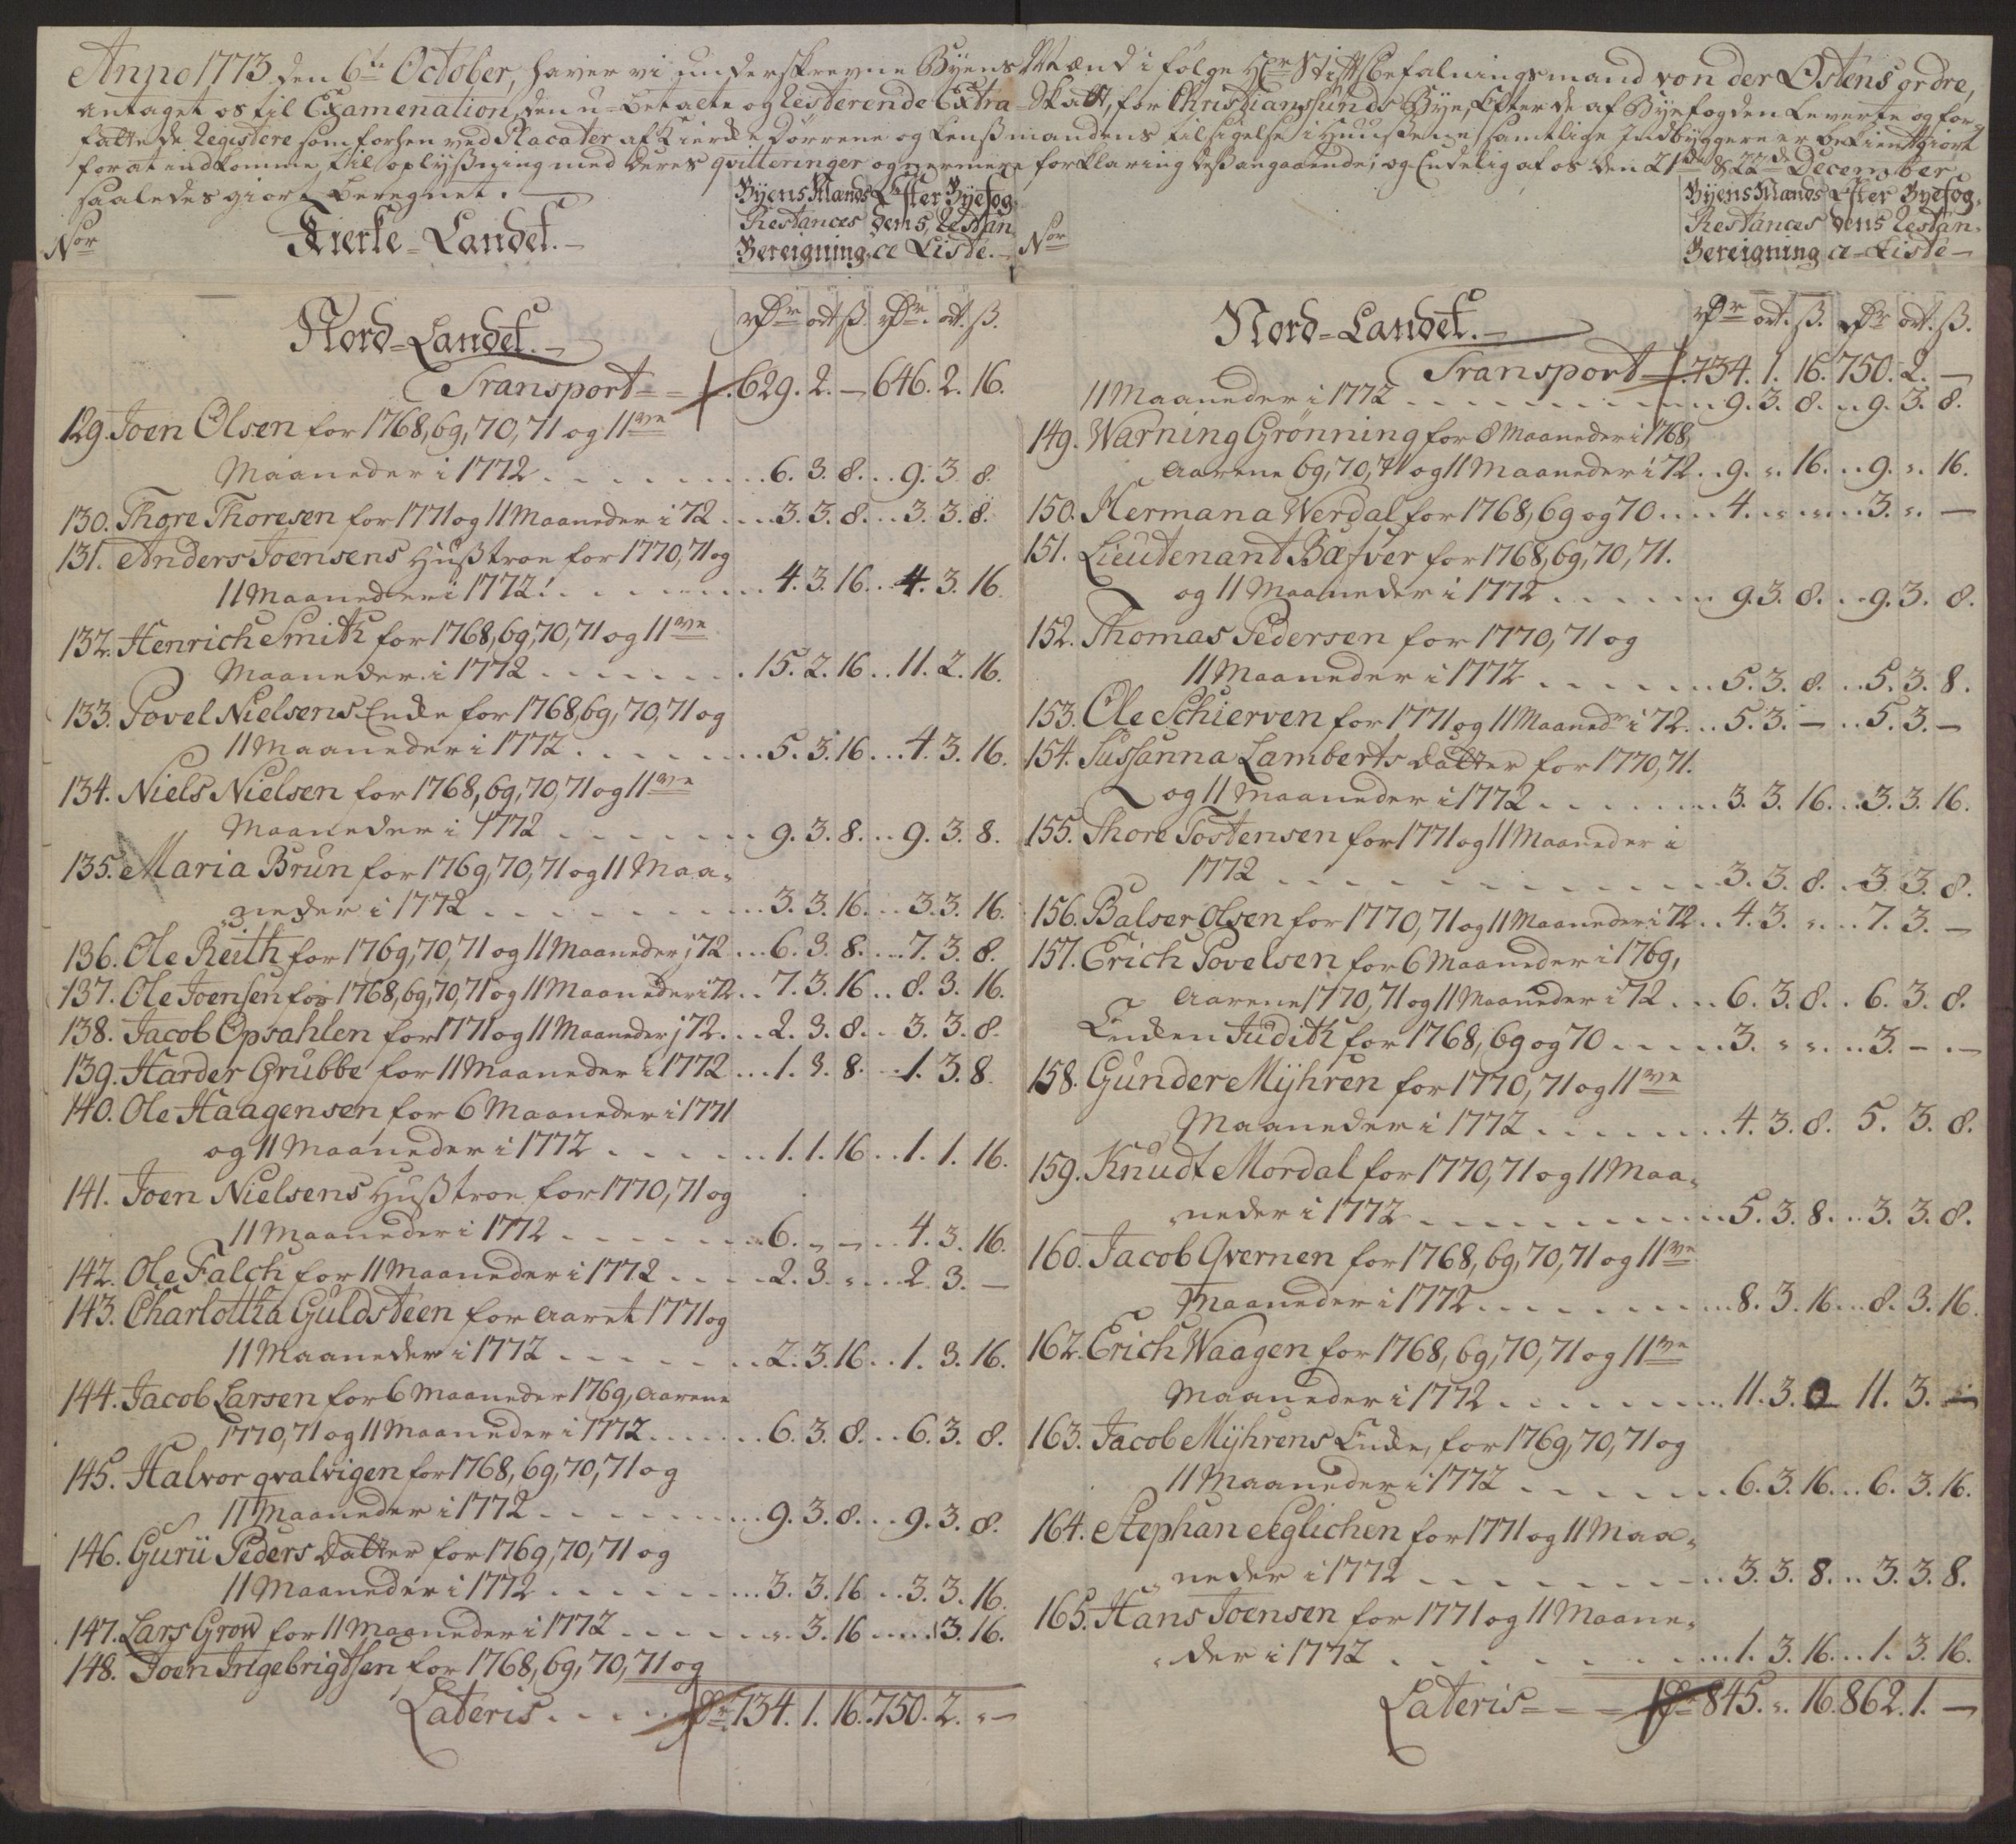 Anno 1773 den 6te October, haver vi underskrevne Byens Mænd i følge Hr Stiftbefalningsmand von der Østens ordre,
antaget os til Examenation, den u-betalte og Resterende Extra-Skatt, for Christiansunds Bye, Efter de af Byefogden Leverte og for-
fattede Registere som forhen ved Placater af Kierke Dørrene og Lensmandens tilsigelse i Huusene samtlige Indbyggere er bekientgiort
for at indkomme til oplysning med deres qvitteringer og nermere forklaring desangaaende; og Endelig af os den 21de & 22de December
saaledes giort beregnet.
Nor
Kierke-Landet.
Byens Mænds Restances Bereigning
Efter Byefogdens, Restance Liste.
Nor
Byens Mænds Restances Bereigning
Efter Byefogdens Restance-Liste
Nord-Landet.
rdr ort ß. rdr. ort. ß.
Transport 629. 2. — 646. 2. 16.
129. Joen Olsen for 1768, 69, 70, 71 og 11ve
Maaneder i 1772 . . . 6. 3. 8. . . 9. 3. 8.
130. Thore Thoresen for 1771 og 11 Maaneder i 72 . . . 3. 3. 8. . . 3. 3. 8.
131. Anders Joensens Hustroe for 1770, 71 og
11 Maaneder i 1772. . . . 4. 3. 16. . . 4. 3. 16.
132. Henrich Smith for 1768, 69, 70, 71 og 11ve
Maaneder i 1772 . . . 15. 2. 16 . . 11. 2. 16.
133. Povel Nielsens Enke for 1768, 69, 70, 71 og
11 Maaneder i 1772 . . . 5. 3. 16 . . 4. 3. 16.
134. Niels Nielsen for 1768, 69, 70, 71 og 11ve
Maaneder i 1772 . . . 9. 3. 8. . . 9. 3. 8.
135. Maria Brun for 1769, 70, 71 og 11 Maa-
neder i 1772 . . . 3. 3. 16. . . 3. 3. 16.
136. Ole Reith for 1769, 70, 71 og 11 Maaneder i 72 . . . 6. 3. 8. . . 7. 3. 8.
137. Ole Joensen for 1768, 69, 70, 71 og 11 Maaneder i 72 . . 7. 3. 16 . . 8. 3. 16.
138. Jacob Opsahlen for 1771 og 11 Maaneder i 72 . . . 2. 3. 8. . . 3. 3. 8.
139. Harder Grubbe for 11 Maaneder i 1772 . . . 1. 3. 8. . . 1. 3. 8.
140. Ole Haagensen for 6 Maaneder i 1771
og 11 Maaneder i 1772 . . . 1. 1. 16 . . 1. 1. 16.
141. Joen Nielsens Hustroe for 1770, 71 og
11 Maaneder i 1772 . . . 6. „ — . . 4. 3. 16.
142. Ole Falch for 11 Maaneder i 1772 . . . 2. 3. „ . . 2. 3. —
143. Charlotha Guldsteen for Aaret 1771 og
11 Maaneder i 1772 . . . 2. 3. 16 . . 1. 3. 16.
144. Jacob Larsen for 6 Maaneder 1769, Aarene
1770, 71 og 11 Maaneder i 1772 . . . 6. 3. 8. . . 6. 3. 8.
145. Halvor qvalvigen for 1768, 69, 70, 71 og
11 Maaneder i 1772 . . . 9. 3. 8. . . 9. 3. 8.
146. Gurü Peders Datter for 1769, 70, 71 og
11 Maaneder i 1772 . . . 3. 3. 16 . . 3. 3. 16.
147. Lars Grow for 11 Maaneder i 1772 . . . „. 3. 16 . . . 3. 16.
148. Joen Ingebrigtsen for 1768, 69, 70, 71 og
Lateris . . . rdr 734. 1. 16. 750. 2. „ —
Nord-Landet.
rdr ort. ß. rdr ort. ß.
Transport 734. 1. 16. 750. 2. —
11 Maaneder i 1772 . . . 9. 3. 8. . . 9. 3. 8.
149. Warning Grønning for 8 Maaneder i 1768,
Aarene 69, 70, 71 og 11 Maaneder i 72 . . 9. „. 16. . . 9. „. 16.
150. Hermana Werdal for 1768, 69 og 70 . . . 4. „. „ . . 3. „. —
151. Lieutenant Bæfver for 1768, 69, 70, 71.
og 11 Maaneder i 1772 . . . 9. 3. 8. . . 9. 3. 8.
152. Thomas Pedersen for 1770, 71 og
11 Maaneder i 1772 . . . 5. 3. 8. . . 5. 3. 8.
153. Ole Schierven for 1771 og 11 Maanedr i 72 . . . 5. 3. — . . 5. 3. —
154. Sussanna Lamberts datter for 1770, 71.
og 11 Maaneder i 1772 . . . 3. 3. 16. . . 3. 3. 16.
155. Thore Tostensen for 1771 og 11 Maaneder i
1772 . . . 3. 3. 8. . . 3. 3. 8.
156. Balser Olsen for 1770, 71 og 11 Maaneder i 72 . . 4. 3. „ . . 7. 3. —
157. Erich Povelsen for 6 Maaneder i 1769,
Aarene 1770, 71 og 11 Maaneder i 72 . . . 6. 3. 8. . . 6. 3. 8.
Enken Judith for 1768, 69 og 70 . . . 3. „ „ . . 3. — . —
158. Gunder Mÿhren for 1770, 71 og 11ve
Maaneder i 1772 . . . 4. 3. 8. 5. 3. 8.
159. Knudt Mordal for 1770, 71 og 11 Maa-
neder i 1772 . . . 5. 3. 8. . . 3. 3. 8.
160. Jacob Qvernen for 1768, 69, 70, 71 og 11ve
Maaneder i 1772 . . . 8. 3. 16 . . 8. 3. 16.
162. Erich Waagen for 1768, 69, 70, 71 og 11ve
Maaneder i 1772 . . . 11. 3. 0 11. 3. —
163. Jacob Mÿhrens Enke, for 1769, 70, 71 og
11 Maaneder i 1772 . . . 6. 3. 16. . . 6. 3. 16.
164. Stephan Eeglichen for 1771 og 11 Maa-
neder i 1772 . . . 3. 3. 8. . . 3. 3. 8.
165. Hans Joensen for 1771 og 11 Maane-
der i 1772 . . . 1. 3. 16 . . 1. 3. 16.
Lateris rdr 845. „. 16. 862. 1. —